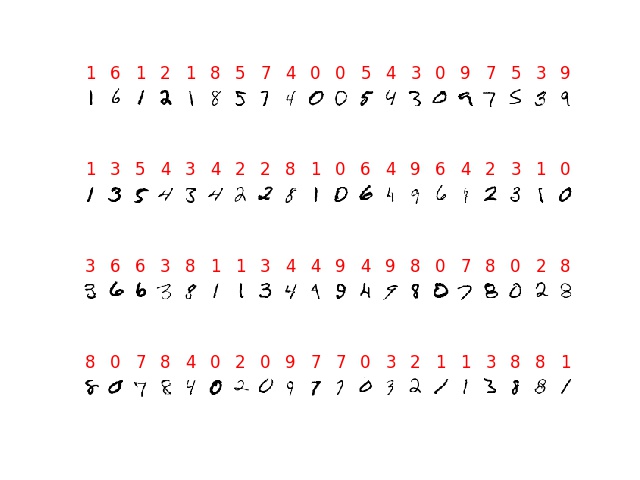 1 6 1 2 1 8 5 7 4 0 0 5 4 3 0 9 7 5 3 9
1 6 1 2 1 8 5 7 4 0 0 5 4 3 0 9 7 5 3 9
1 3 5 4 3 4 2 2 8 1 0 6 4 9 6 4 2 3 1 0
1 3 5 4 3 4 2 2 8 1 0 6 4 9 6 4 2 3 1 0
3 6 6 3 8 1 1 3 4 4 9 4 9 8 0 7 8 0 2 8
3 6 6 3 8 1 1 3 4 4 9 4 9 8 0 7 8 0 2 8
8 0 7 8 4 0 2 0 9 7 7 0 3 2 1 1 3 8 8 1
8 0 7 8 4 0 2 0 9 7 7 0 3 2 1 1 3 8 8 1